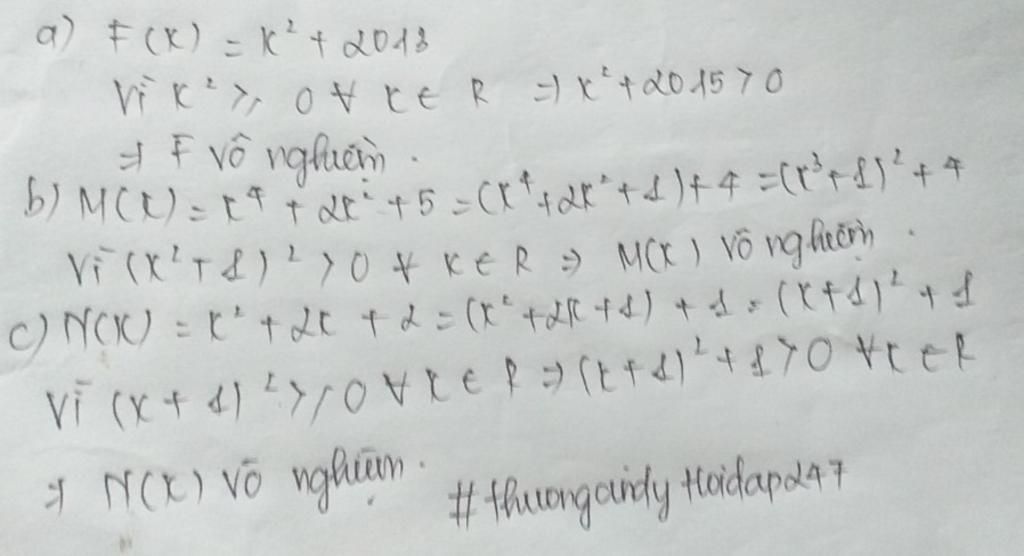 a) F(x) = x² + 2018
Vì x² ≥ 0 ∀ x ∈ R ⇒ x² + 2015 > 0
⇒ F vô nghiệm.
b) M(x) = x⁴ + 2x² + 5 = (x⁴ + 2x² + 1) + 4 = (x³ + 1)² + 4
Vì (x² + 1)² > 0 ∀ x ∈ R ⇒ M(x) vô nghiệm.
c) N(x) = x² + 2x + 2 = (x² + 2x + 1) + 1 = (x + 1)² + 1
Vì (x + 1)² ≥ 0 ∀ x ∈ R ⇒ (x + 1)² + 1 > 0 ∀ x ∈ R
⇒ N(x) vô nghiệm.
#thuongcindy Hoidap247